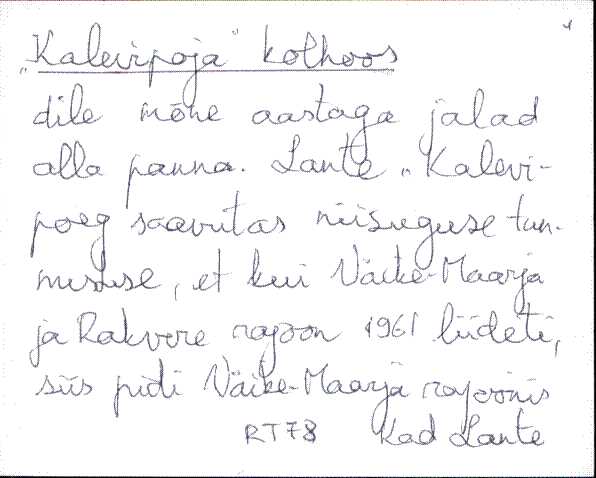 „Kalevipoja" kolhoos
dile mõne aastaga jalad
alla panna. Lante „Kalevi-
poeg saavutas niisuguse tun-
nustuse, et kui Väike-Maarja
ja Rakvere rajoon 1961 liideti,
siis pidi Väike-Maarja rajoonis
RT78 Kad Lante